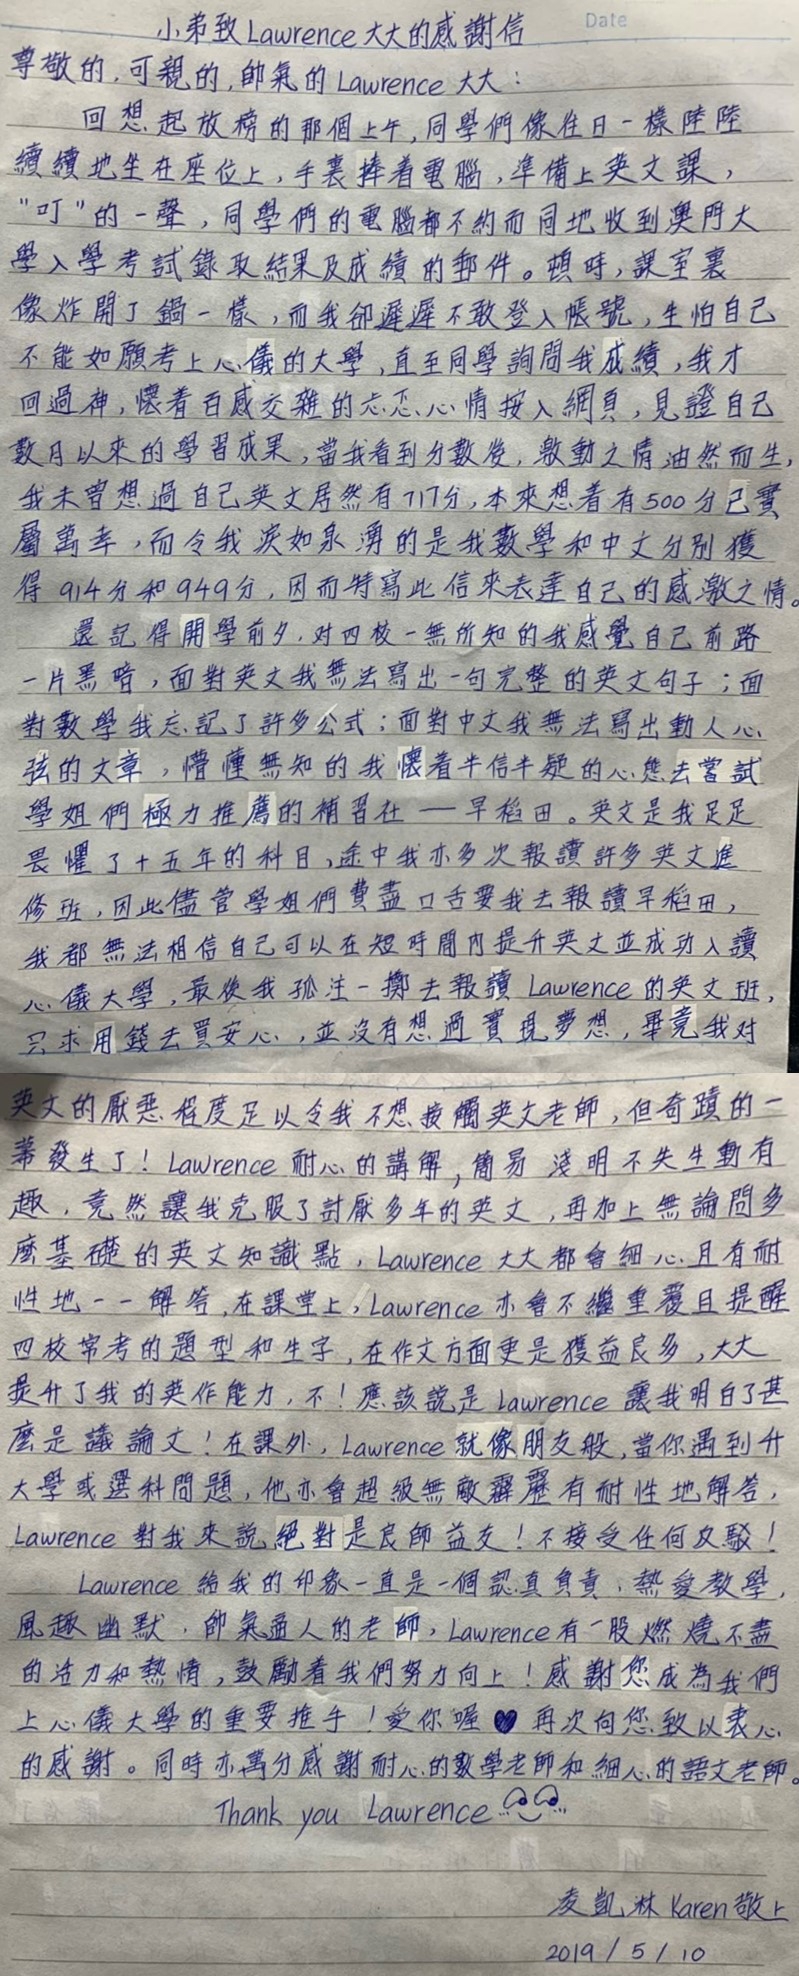 Date
小弟致Lawrence大大的感謝信
尊敬的,可親的,帥氣的Lawrence大大:
回想起放榜的那個上午,同學們像往日一樣陸陸
續續地坐在座位上,手裏捧着電腦,準備上英文課,
"叮"的一聲,同學們的電腦都不約而同地收到澳門大
學入學考試錄取結果及成績的郵件。頓時,課室裏
像炸開了鍋一樣,而我卻遲遲不敢登入帳號,生怕自己
不能如願考上心儀的大學,直至同學詢問我成績,我才
回過神,懷着百感交雜的忐忑心情按入網頁,見證自己
數月以來的學習成果,當我看到分數後,激動之情油然而生,
我未曾想過自己英文居然有717分,本來想着有500分已實
屬萬幸,而令我淚如泉湧的是我數學和中文分別獲
得914分和949分,因而特寫此信來表達自己的感激之情。
還記得開學前夕,對四校一無所知的我感覺自己前路
一片黑暗,面對英文我無法寫出一句完整的英文句子;面
對數學我忘記了許多公式;面對中文我無法寫出動人心
弦的文章,懵懂無知的我懷着半信半疑的心態去嘗試
學姐們極力推薦的補習社——早稻田。英文是我足足
畏懼了十五年的科目,途中我亦多次報讀許多英文進
修班,因此儘管學姐們費盡口舌要我去報讀早稻田,
我都無法相信自己可以在短時間內提升英文並成功入讀
心儀大學,最後我孤注一擲去報讀Lawrence的英文班,
只求用錢去買安心,並沒有想過實現夢想,畢竟我對
英文的厭惡程度足以令我不想接觸英文老師,但奇蹟的一
幕發生了!Lawrence耐心的講解,簡易淺明不失生動有
趣,竟然讓我克服了討厭多年的英文,再加上無論問多
麼基礎的英文知識點,Lawrence大大都會細心且有耐
性地一一解答,在課堂上,Lawrence亦會不繼重覆且提醒
四校常考的題型和生字,在作文方面更是獲益良多,大大
提升了我的英作能力,不!應該說是Lawrence讓我明白了甚
麼是議論文!在課外,Lawrence就像朋友般,當你遇到升
大學或選科問題,他亦會超級無敵霹靂有耐性地解答,
Lawrence對我來說絕對是良師益友!不接受任何反駁!
Lawrence給我的印象一直是一個認真負責,熱愛教學,
風趣幽默,帥氣逼人的老師,Lawrence有一股燃燒不盡
的活力和熱情,鼓勵着我們努力向上!感謝您成為我們
上心儀大學的重要推手!愛你喔♥再次向您致以衷心
的感謝。同時亦萬分感謝耐心的數學老師和細心的語文老師。
Thank you Lawrence
凌凱淋Karen敬上
2019/5/10